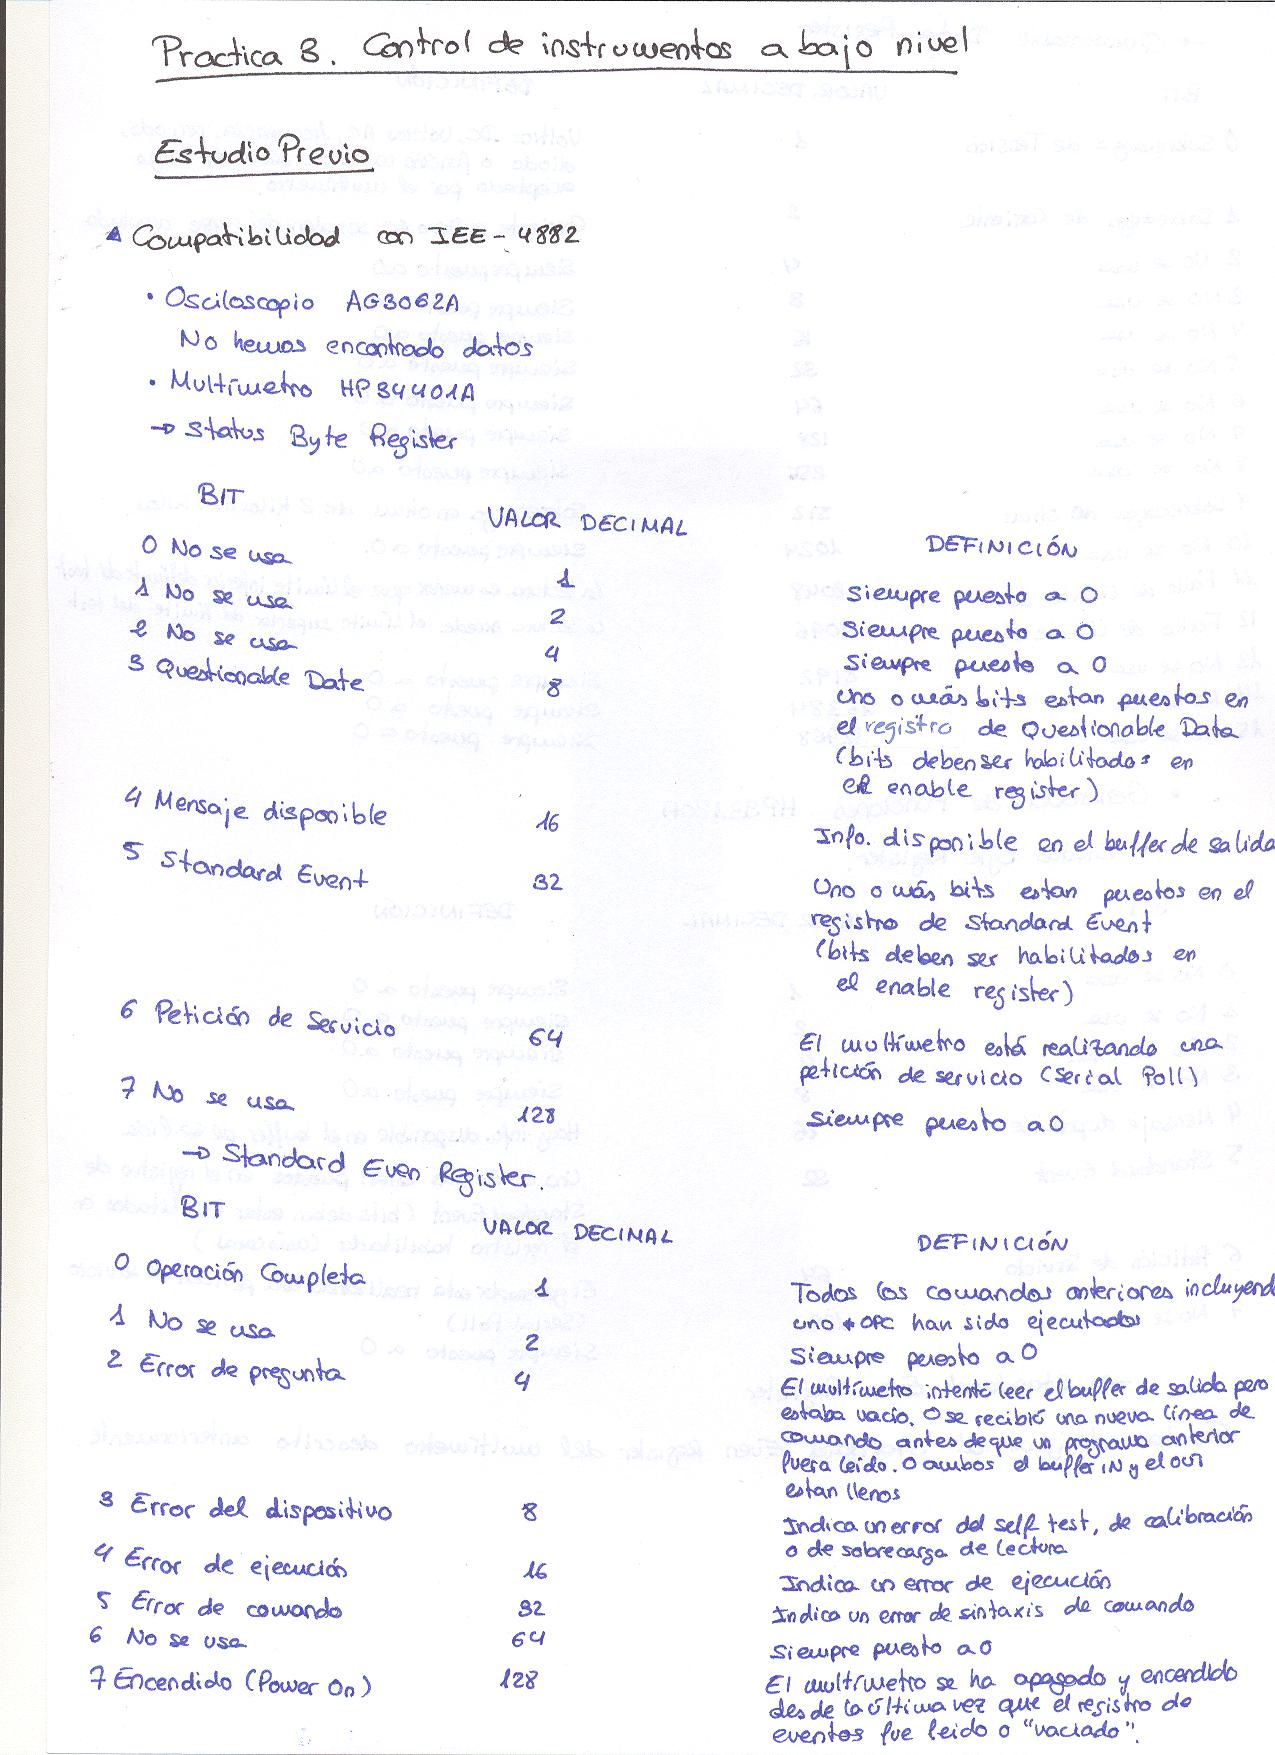 Practica 3. Control de instrumentos a bajo nivel
Estudio Previo
Compatibilidad con IEE-4882
• Osciloscopio AG3062A
No hemos encontrado datos
• Multímetro HP34401A
→ Status Byte Register
BIT VALOR DECIMAL DEFINICIÓN
0 No se usa 1 Siempre puesto a 0
1 No se usa 2 Siempre puesto a 0
2 No se usa 4 Siempre puesto a 0
3 Questionable Date 8 Uno o más bits estan puestos en
el registro de Questionable Data
(bits deben ser habilitados en
el enable register)
4 Mensaje disponible 16 Info. disponible en el buffer de salida
5 Standard Event 32 Uno o más bits estan puestos en el
registro de Standard Event
(bits deben ser habilitados en
el enable register)
6 Petición de Servicio 64 El multímetro está realizando una
petición de servicio (Serial Poll)
7 No se usa 128 Siempre puesto a 0
→ Standard Even Register.
BIT VALOR DECIMAL DEFINICIÓN
0 Operación Completa 1 Todos los comandos anteriores incluyendo
uno *OPC han sido ejecutados
1 No se usa 2 Siempre puesto a 0
2 Error de pregunta 4 El multímetro intentó leer el buffer de salida pero
estaba vacío. O se recibió una nueva línea de
comando antes de que un programa anterior
fuera leido. O ambos el buffer IN y el OUT
estan llenos
3 Error del dispositivo 8 Indica un error del self test, de calibración
o de sobrecarga de lectura
4 Error de ejecución 16 Indica un error de ejecución
5 Error de comando 32 Indica un error de sintaxis de comando
6 No se usa 64 Siempre puesto a 0
7 Encendido (Power On) 128 El multímetro se ha apagado y encendido
desde la última vez que el registro de
eventos fue leido o "vaciado".